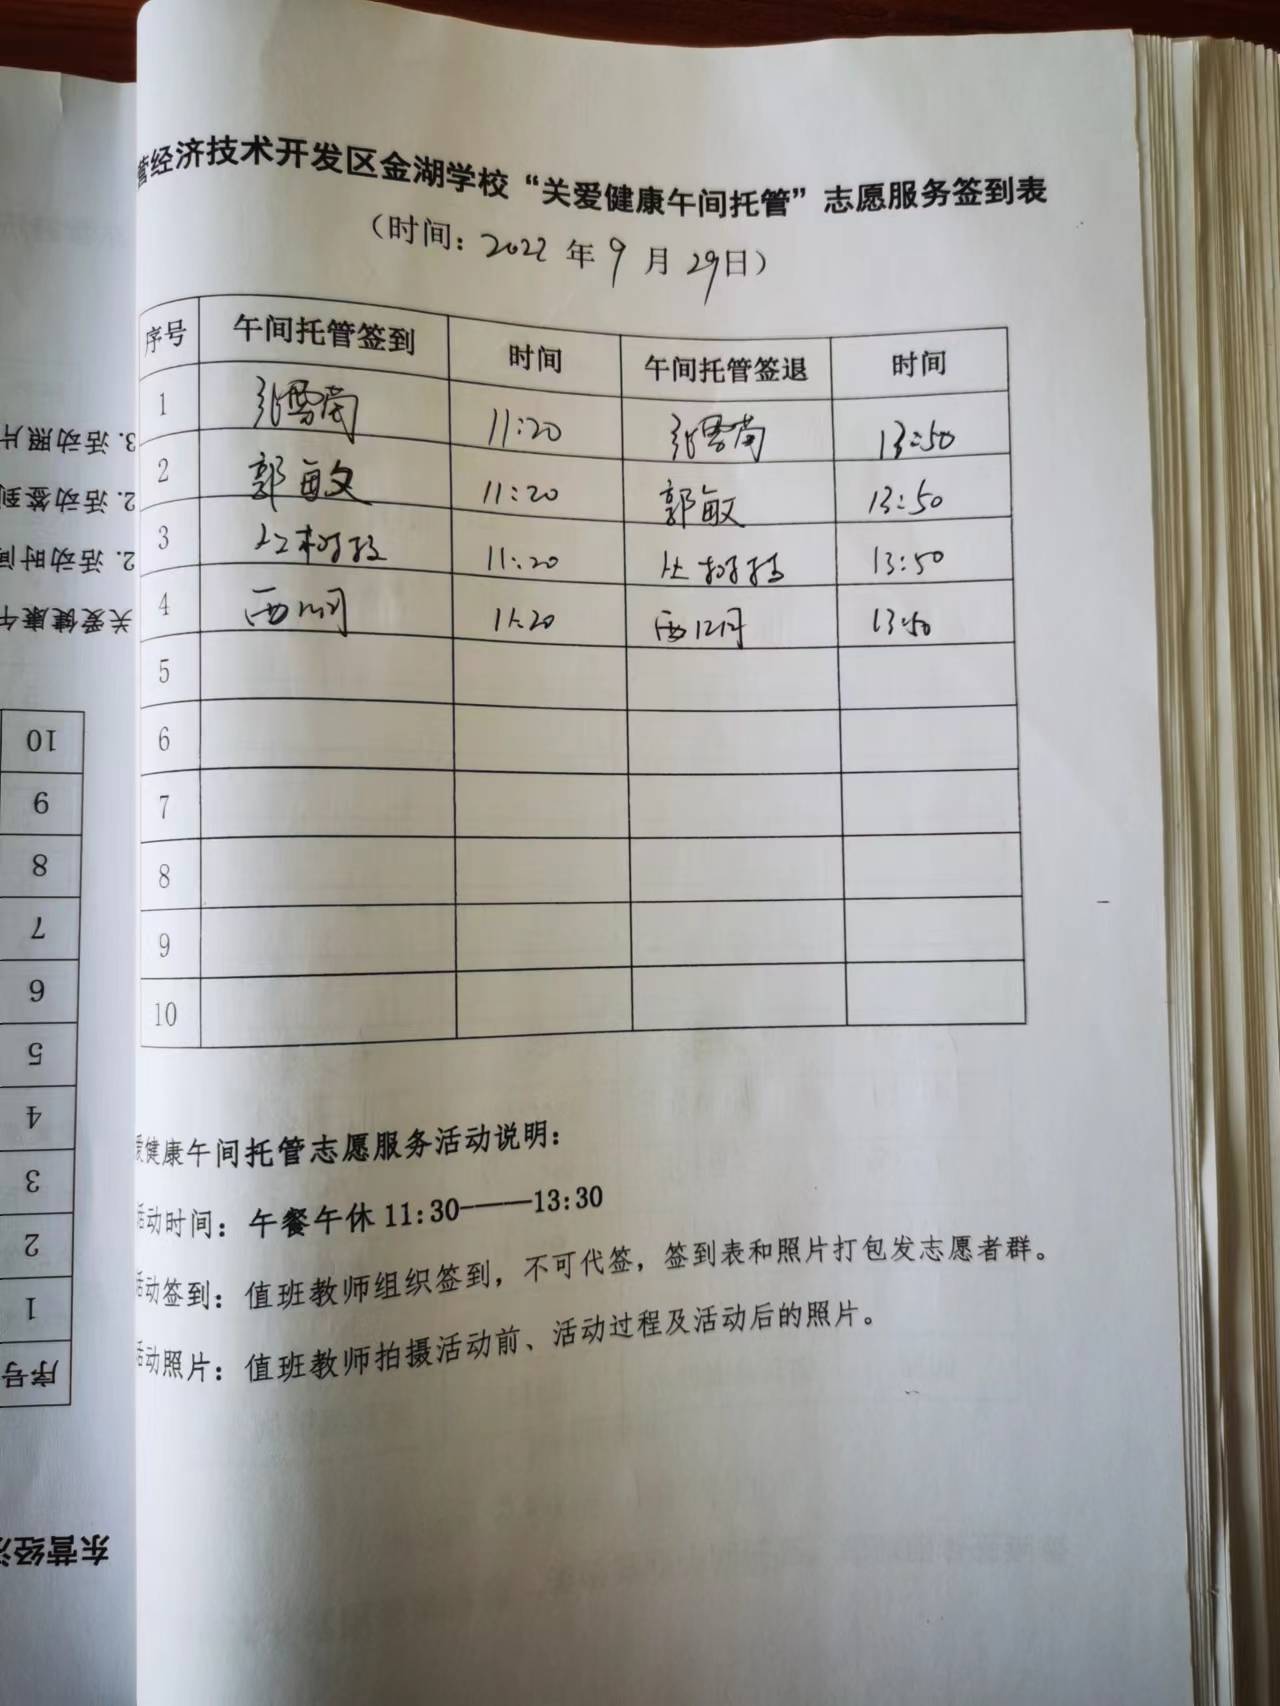 营经济技术开发区金湖学校“关爱健康午间托管”志愿服务签到表
（时间：2022年9月29日）
序号 午间托管签到 时间 午间托管签退 时间
1 张雪茵 11:20 张雪茵 13:50
2 郭敏 11:20 郭敏 13:50
3 11:20 13:50
4 11:20 13:50
5
6
7
8
9
10
爱健康午间托管志愿服务活动说明：
活动时间：午餐午休11:30——13:30
活动签到：值班教师组织签到，不可代签，签到表和照片打包发志愿者群。
活动照片：值班教师拍摄活动前、活动过程及活动后的照片。
东营经济
序号
1
2
3
4
5
6
7
8
9
10
关爱健康午
2. 活动时间
2. 活动签到
3. 活动照片